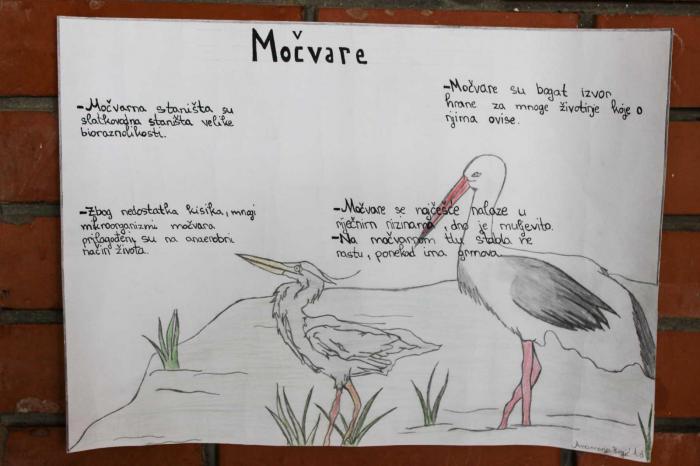 Močvare
-Močvarna staništa su
slatkovodna staništa velike
bioraznolikosti.
-Močvare su bogat izvor
hrane za mnoge životinje koje o
njima ovise.
-Zbog nedostatka kisika, mnogi
mikroorganizmi močvara
prilagođeni su na anaerobni
način života.
-Močvare se najčešće nalaze u
riječnim nizinama, dno je muljevito.
-Na močvarnom tlu stabla ne
rastu, ponekad ima grmova.